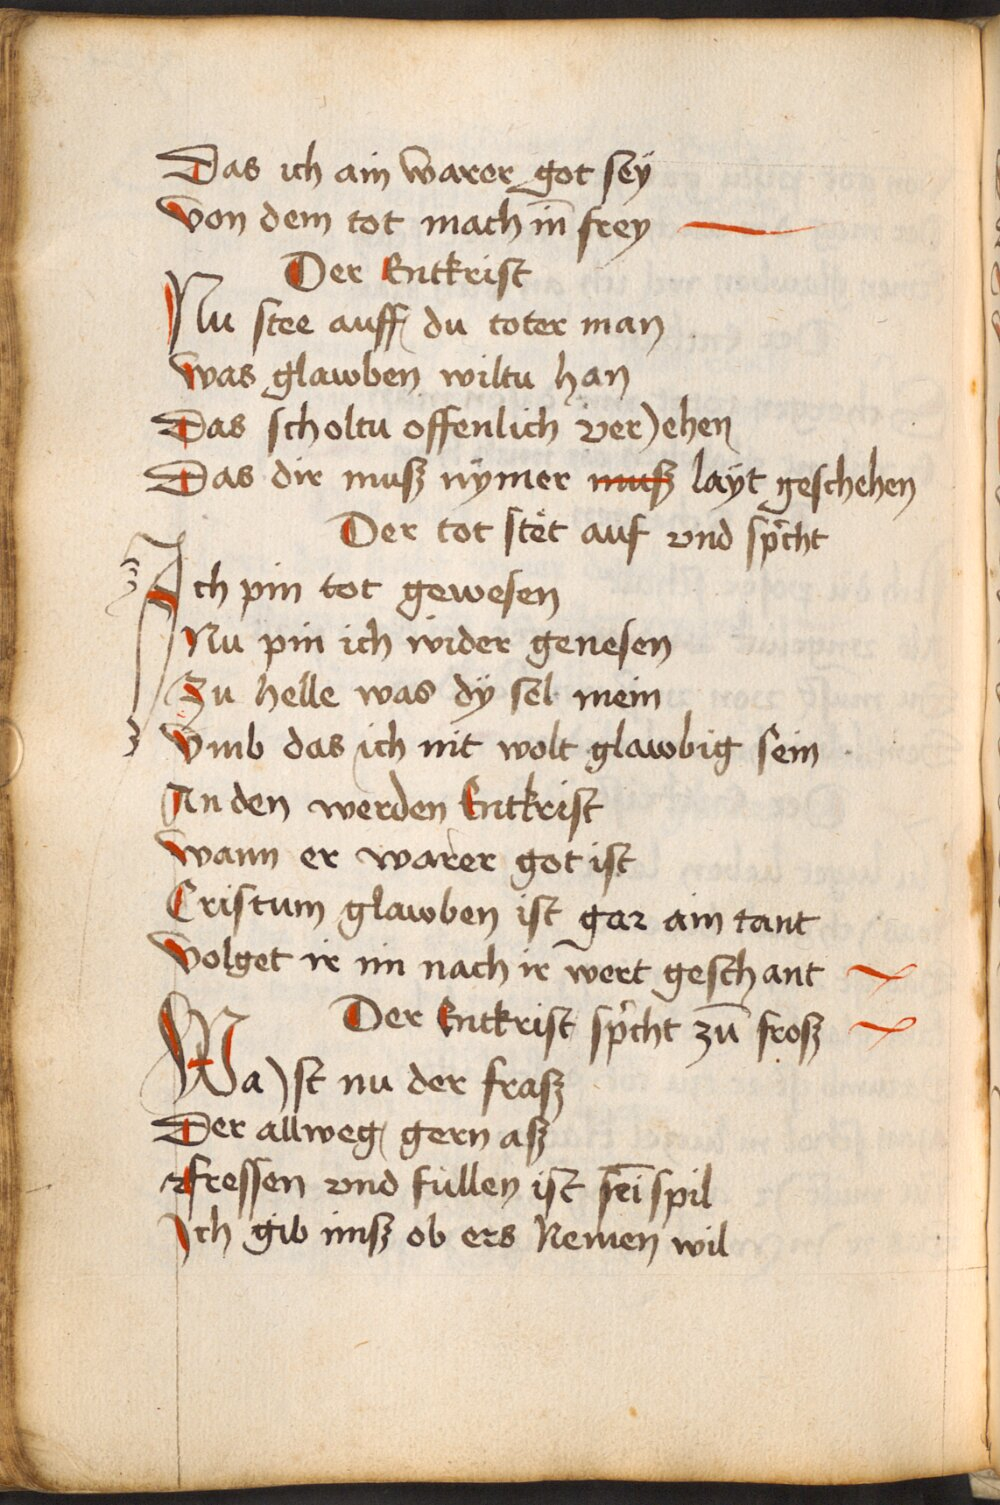 Das ich ain warer got seÿ
von dem tot mach in̄ frey
Der Entkrist
Nu stee auff du toter man
was glawben wiltu han
Das scholtu offenlich veriehen
Das dir musz nÿmer musz laÿt geschehen
Der tot stet auf vnd sp̄cht
Ich pin tot gewesen
Nu pin ich wider genesen
Zu helle was dÿ sel mein
Vmb das ich nit wolt glawbig sein
An den werden Entkrist
wann er warer got ist
Cristum glawben ist gar ain tant
volget ir im nach ir wert geschant
Der Entkrist sp̄cht zū frosz
Wa ist nu der frasz
Der allweg gern asz
Fressen vnd füllen ist sei̅ spil
Ich gib imsz ob ers Nemen wil